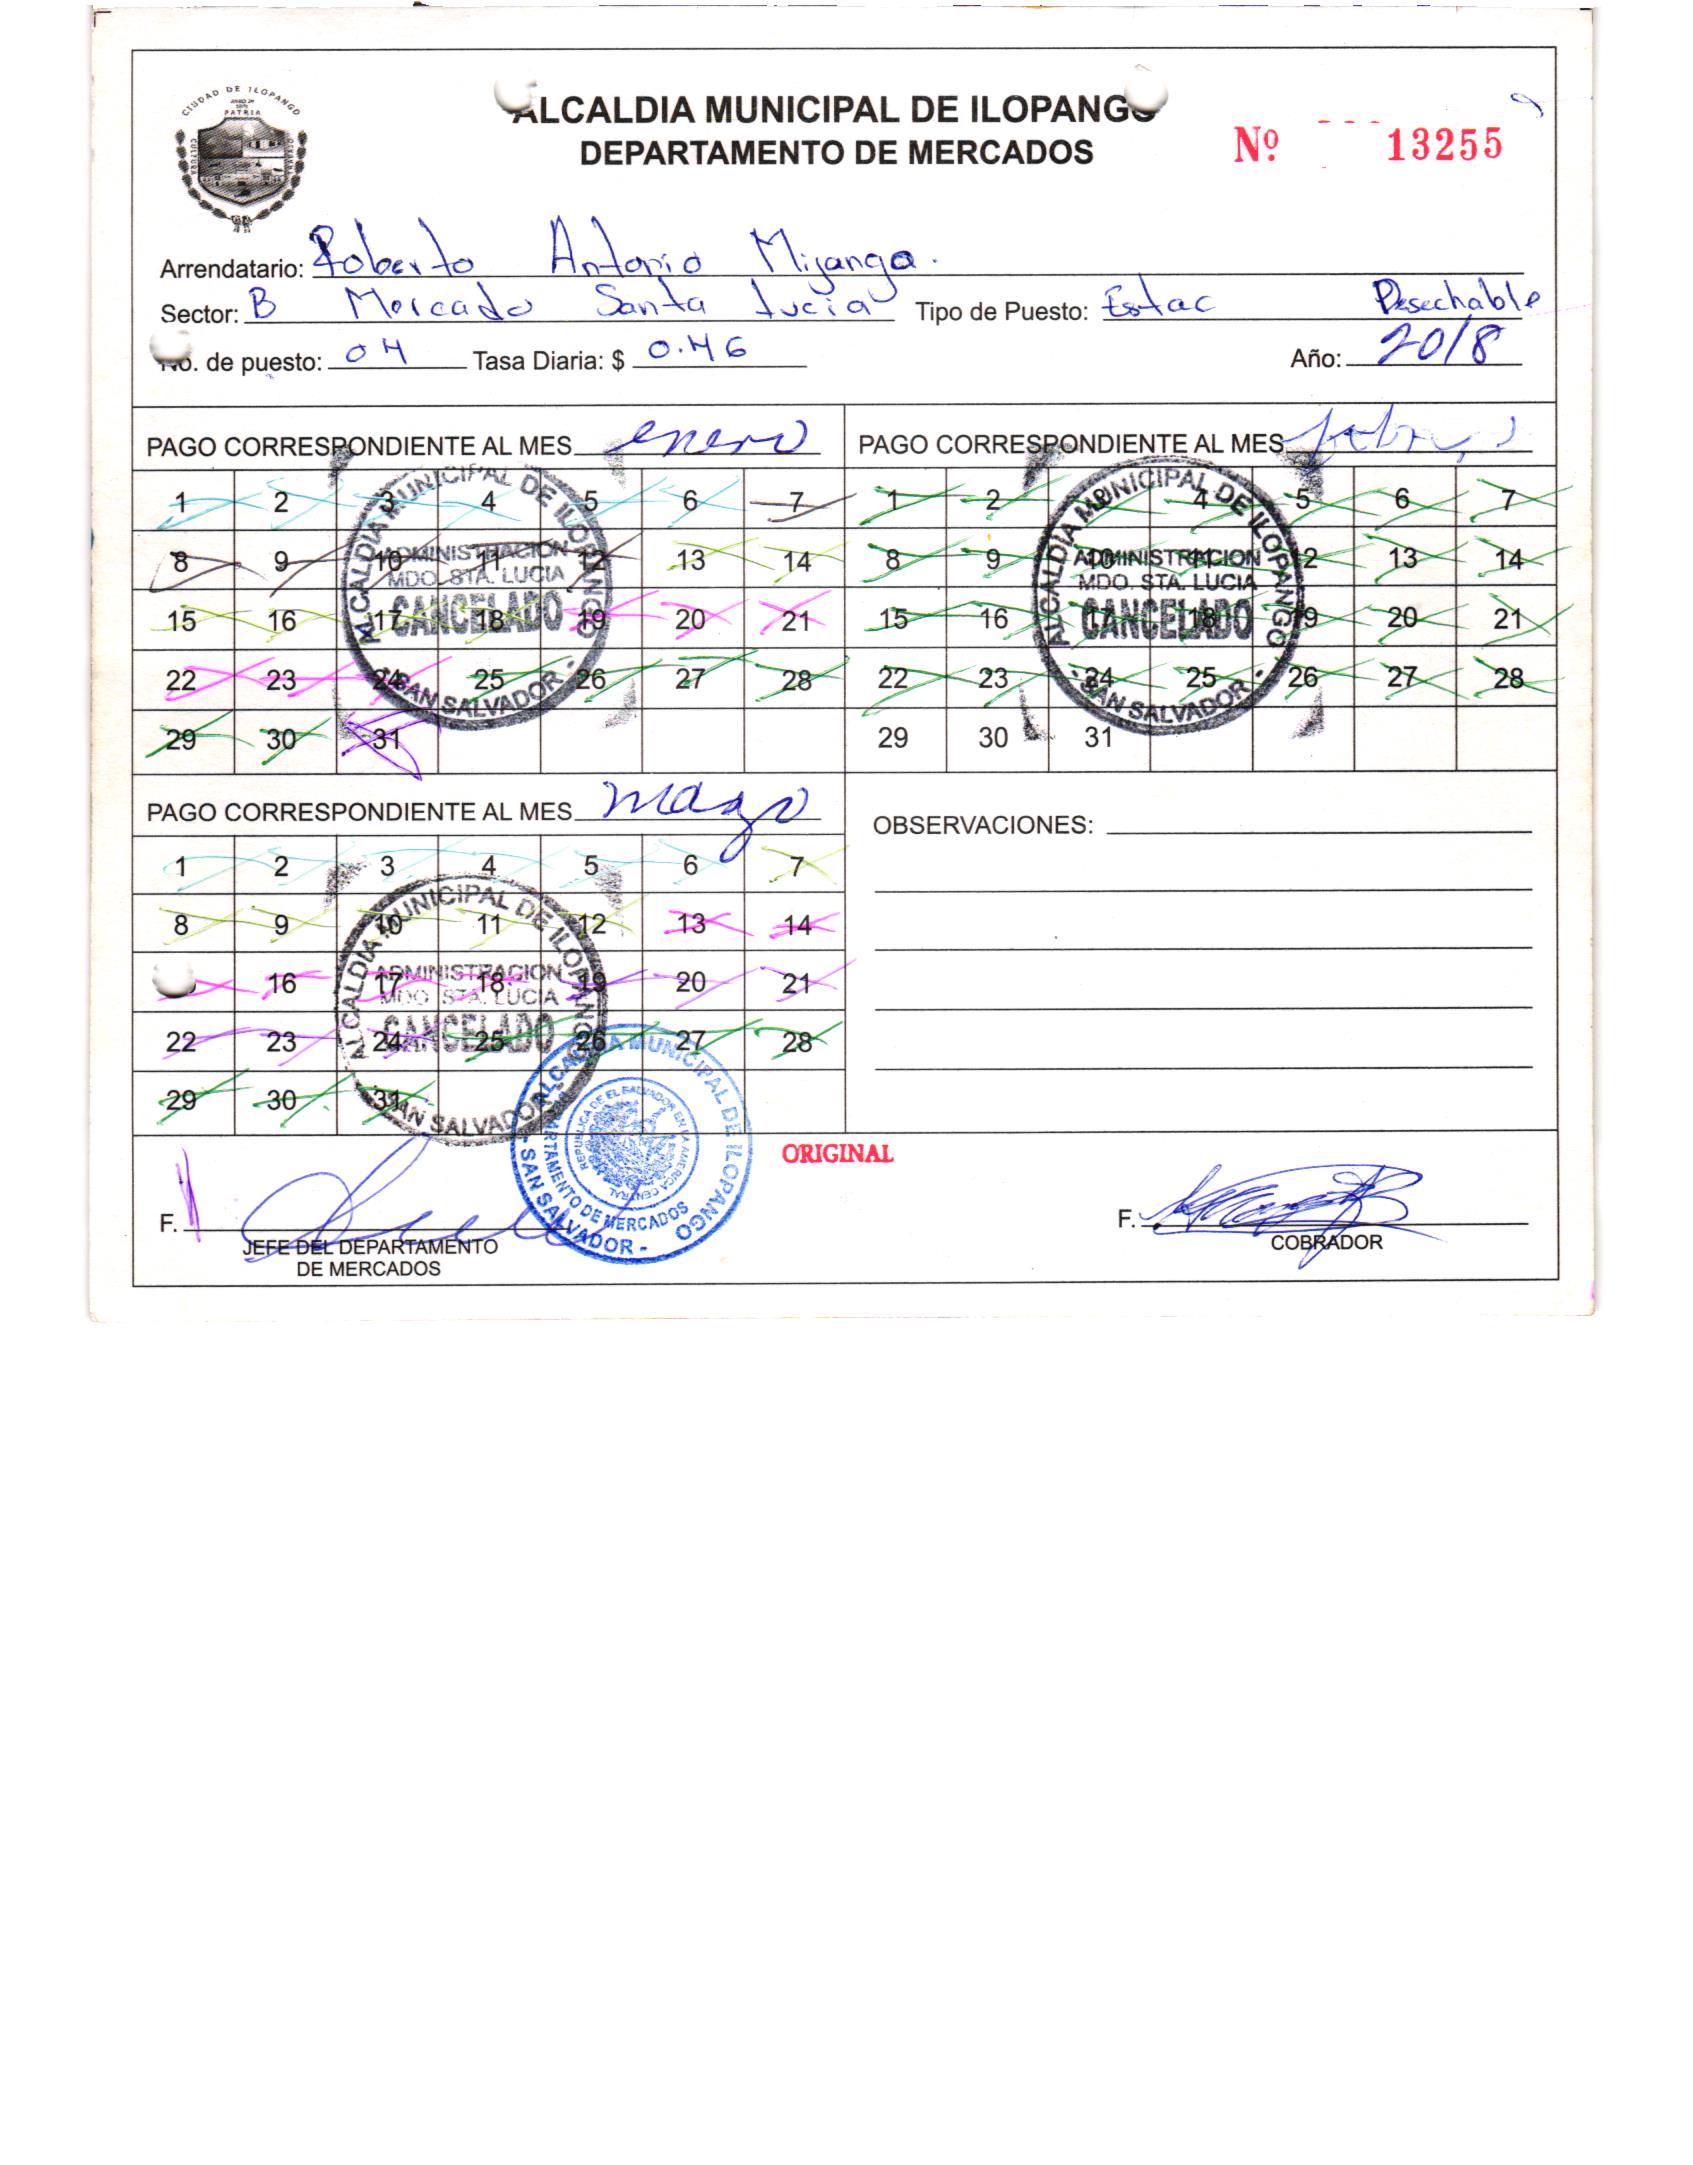 CIUDAD DE ILOPANGO
PATRIA
CULTURA
ALCALDIA MUNICIPAL DE ILOPANGO
DEPARTAMENTO DE MERCADOS
Nº 13255
Arrendatario: Roberto Antonio Mijango.
Sector: B Mercado Santa Lucia Tipo de Puesto: Estac Desechable
No. de puesto: 04 Tasa Diaria: $ 0.46 Año: 2018
PAGO CORRESPONDIENTE AL MES enero
1 2 3 4 5 6 7
8 9 10 11 12 13 14
15 16 17 18 19 20 21
22 23 24 25 26 27 28
29 30 31
ALCALDIA MUNICIPAL DE ILOPANGO
ADMINISTRACION
MDO. STA. LUCIA
CANCELADO
- SAN SALVADOR -
PAGO CORRESPONDIENTE AL MES
1 2 3 4 5 6 7
8 9 10 11 12 13 14
15 16 17 18 19 20 21
22 23 24 25 26 27 28
29 30 31
ALCALDIA MUNICIPAL DE ILOPANGO
ADMINISTRACION
MDO. STA. LUCIA
CANCELADO
- SAN SALVADOR -
PAGO CORRESPONDIENTE AL MES marzo
1 2 3 4 5 6 7
8 9 10 11 12 13 14
16 17 18 19 20 21
22 23 24 25 26 27 28
29 30 31
ALCALDIA MUNICIPAL DE ILOPANGO
ADMINISTRACION
MDO. STA. LUCIA
CANCELADO
SAN SALVADOR
OBSERVACIONES:
ALCALDIA MUNICIPAL DE ILOPANGO
REPUBLICA DE EL SALVADOR EN LA AMERICA CENTRAL
DEPARTAMENTO DE MERCADOS
- SAN SALVADOR -
ORIGINAL
F.
JEFE DEL DEPARTAMENTO
DE MERCADOS
F.
COBRADOR